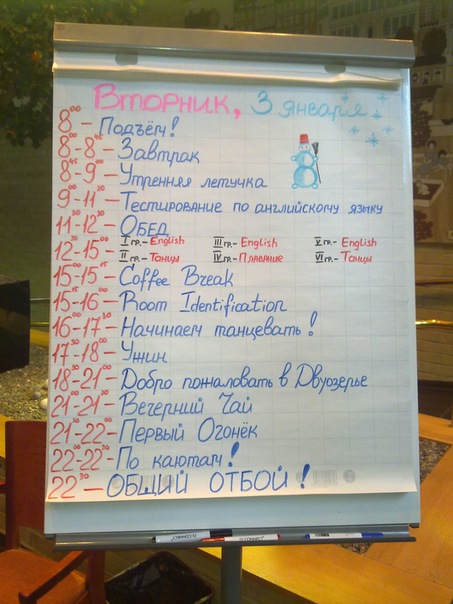 Вторник, 3 января
8⁰⁰ – Подъём!
8⁰⁰-8⁴⁵ – Завтрак
8⁴⁵-9⁰⁰ – Утренняя летучка
9⁰⁰-11³⁰ – Тестирование по английскому языку
11³⁰-12³⁰ – Обед
12³⁰-15⁰⁰ I гр.– English III гр.– English V гр.– English
II гр.– Танцы IV гр.– Плавание VI гр.– Танцы
15⁰⁰-15¹⁵ – Coffee Break
15¹⁵-16⁰⁰ – Room Identification
16⁰⁰-17³⁰ – Начинаем танцевать!
17³⁰-18⁰⁰ – Ужин
18³⁰-21⁰⁰ – Добро пожаловать в Двуозерье
21⁰⁰-21³⁰ – Вечерний Чай
21³⁰-22⁰⁰ – Первый Огонёк
22⁰⁰-22³⁰ – По каютам!
22³⁰ – ОБЩИЙ ОТБОЙ!